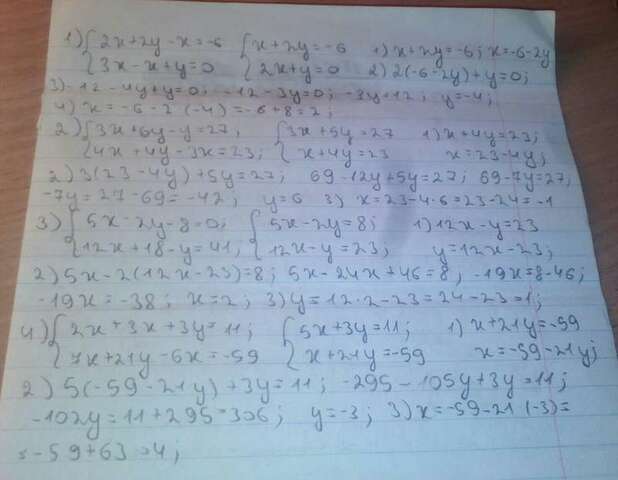 1) {2x+2y-x=-6 {x+2y=-6 1) x+2y=-6; x=-6-2y
{3x-x+y=0 {2x+y=0 2) 2(-6-2y)+y=0;
3) -12-4y+y=0; -12-3y=0; -3y=12; y=-4;
4) x=-6-2(-4)=-6+8=2;
2) {3x+6y-y=27; {3x+5y=27 1) x+4y=23;
{4x+4y-3x=23; {x+4y=23 x=23-4y;
2) 3(23-4y)+5y=27; 69-12y+5y=27; 69-7y=27;
-7y=27-69=-42, y=6 3) x=23-4·6=23-24=-1
3) {5x-2y-8=0; {5x-2y=8; 1) 12x-y=23
{12x+18-y=41; {12x-y=23; y=12x-23;
2) 5x-2(12x-23)=8; 5x-24x+46=8; -19x=8-46;
-19x=-38; x=2; 3) y=12·2-23=24-23=1;
4) {2x+3x+3y=11; {5x+3y=11; 1) x+21y=-59
{7x+21y-6x=-59 {x+21y=-59 x=-59-21y;
2) 5(-59-21y)+3y=11; -295-105y+3y=11;
-102y=11+295=306; y=-3; 3) x=-59-21(-3)=
=-59+63=4;